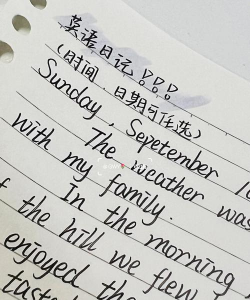 英语日记！！！
（时间、日期可任选）
Sunday, Sepetember
The weather was
with my family.
In the morning
the hill we flew
enjoyed the
taste